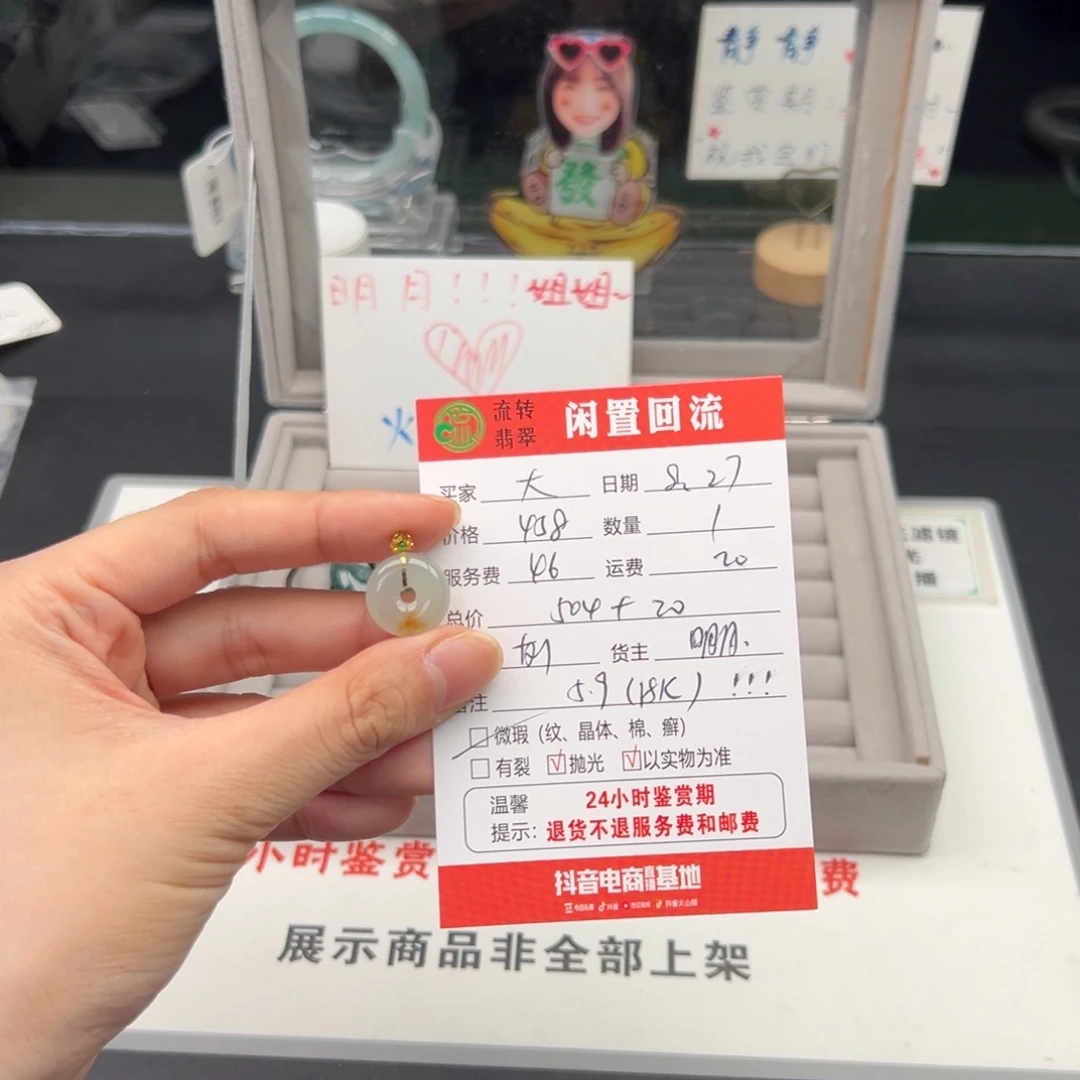 静静
鉴赏期
發
明月!!!姐姐~
火
流转
翡翠
闲置回流
买家 大 日期 8.27
价格 458 数量 1
服务费 46 运费 20
总价 504+20
货主 明月.
备注 5.9(18K)!!!
微瑕(纹、晶体、棉、癣)
有裂 √抛光 √以实物为准
温馨
提示:
24小时鉴赏期
退货不退服务费和邮费
抖音电商直播基地
小时鉴赏
费
展示商品非全部上架